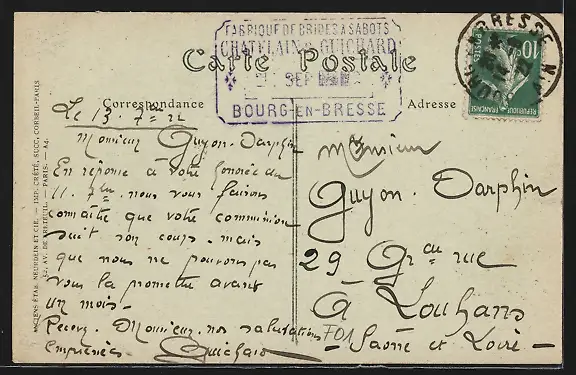 FABRIQUE DE BRIDES A SABOTS
CHATELAIN & GUICHARD
SEP
BOURG-EN-BRESSE
Carte Postale
Correspondance
Adresse
BRESSE
AIN
10c
POSTES
REPUBLIQUE FRANÇAISE
Le 13. 7bre 22
Monsieur Guyon-Darphin
En réponse à votre honorée du
11. 7bre. nous vous faisons
connaître que votre commission
suit son cours. mais
que nous ne pouvons pas
vous la promettre avant
un mois-
Recevez. Monsieur, nos salutations
empressées
Guichard
Monsieur
Guyon. Darphin
29 Gde rue
à Louhans
701
Saône et Loire
ANCIENS ÉTAB. NEURDEIN ET CIE. — IMP. CRÉTÉ, SUCC. CORBEIL-PARIS
52, AV. DE BRETEUIL — PARIS. — A4.